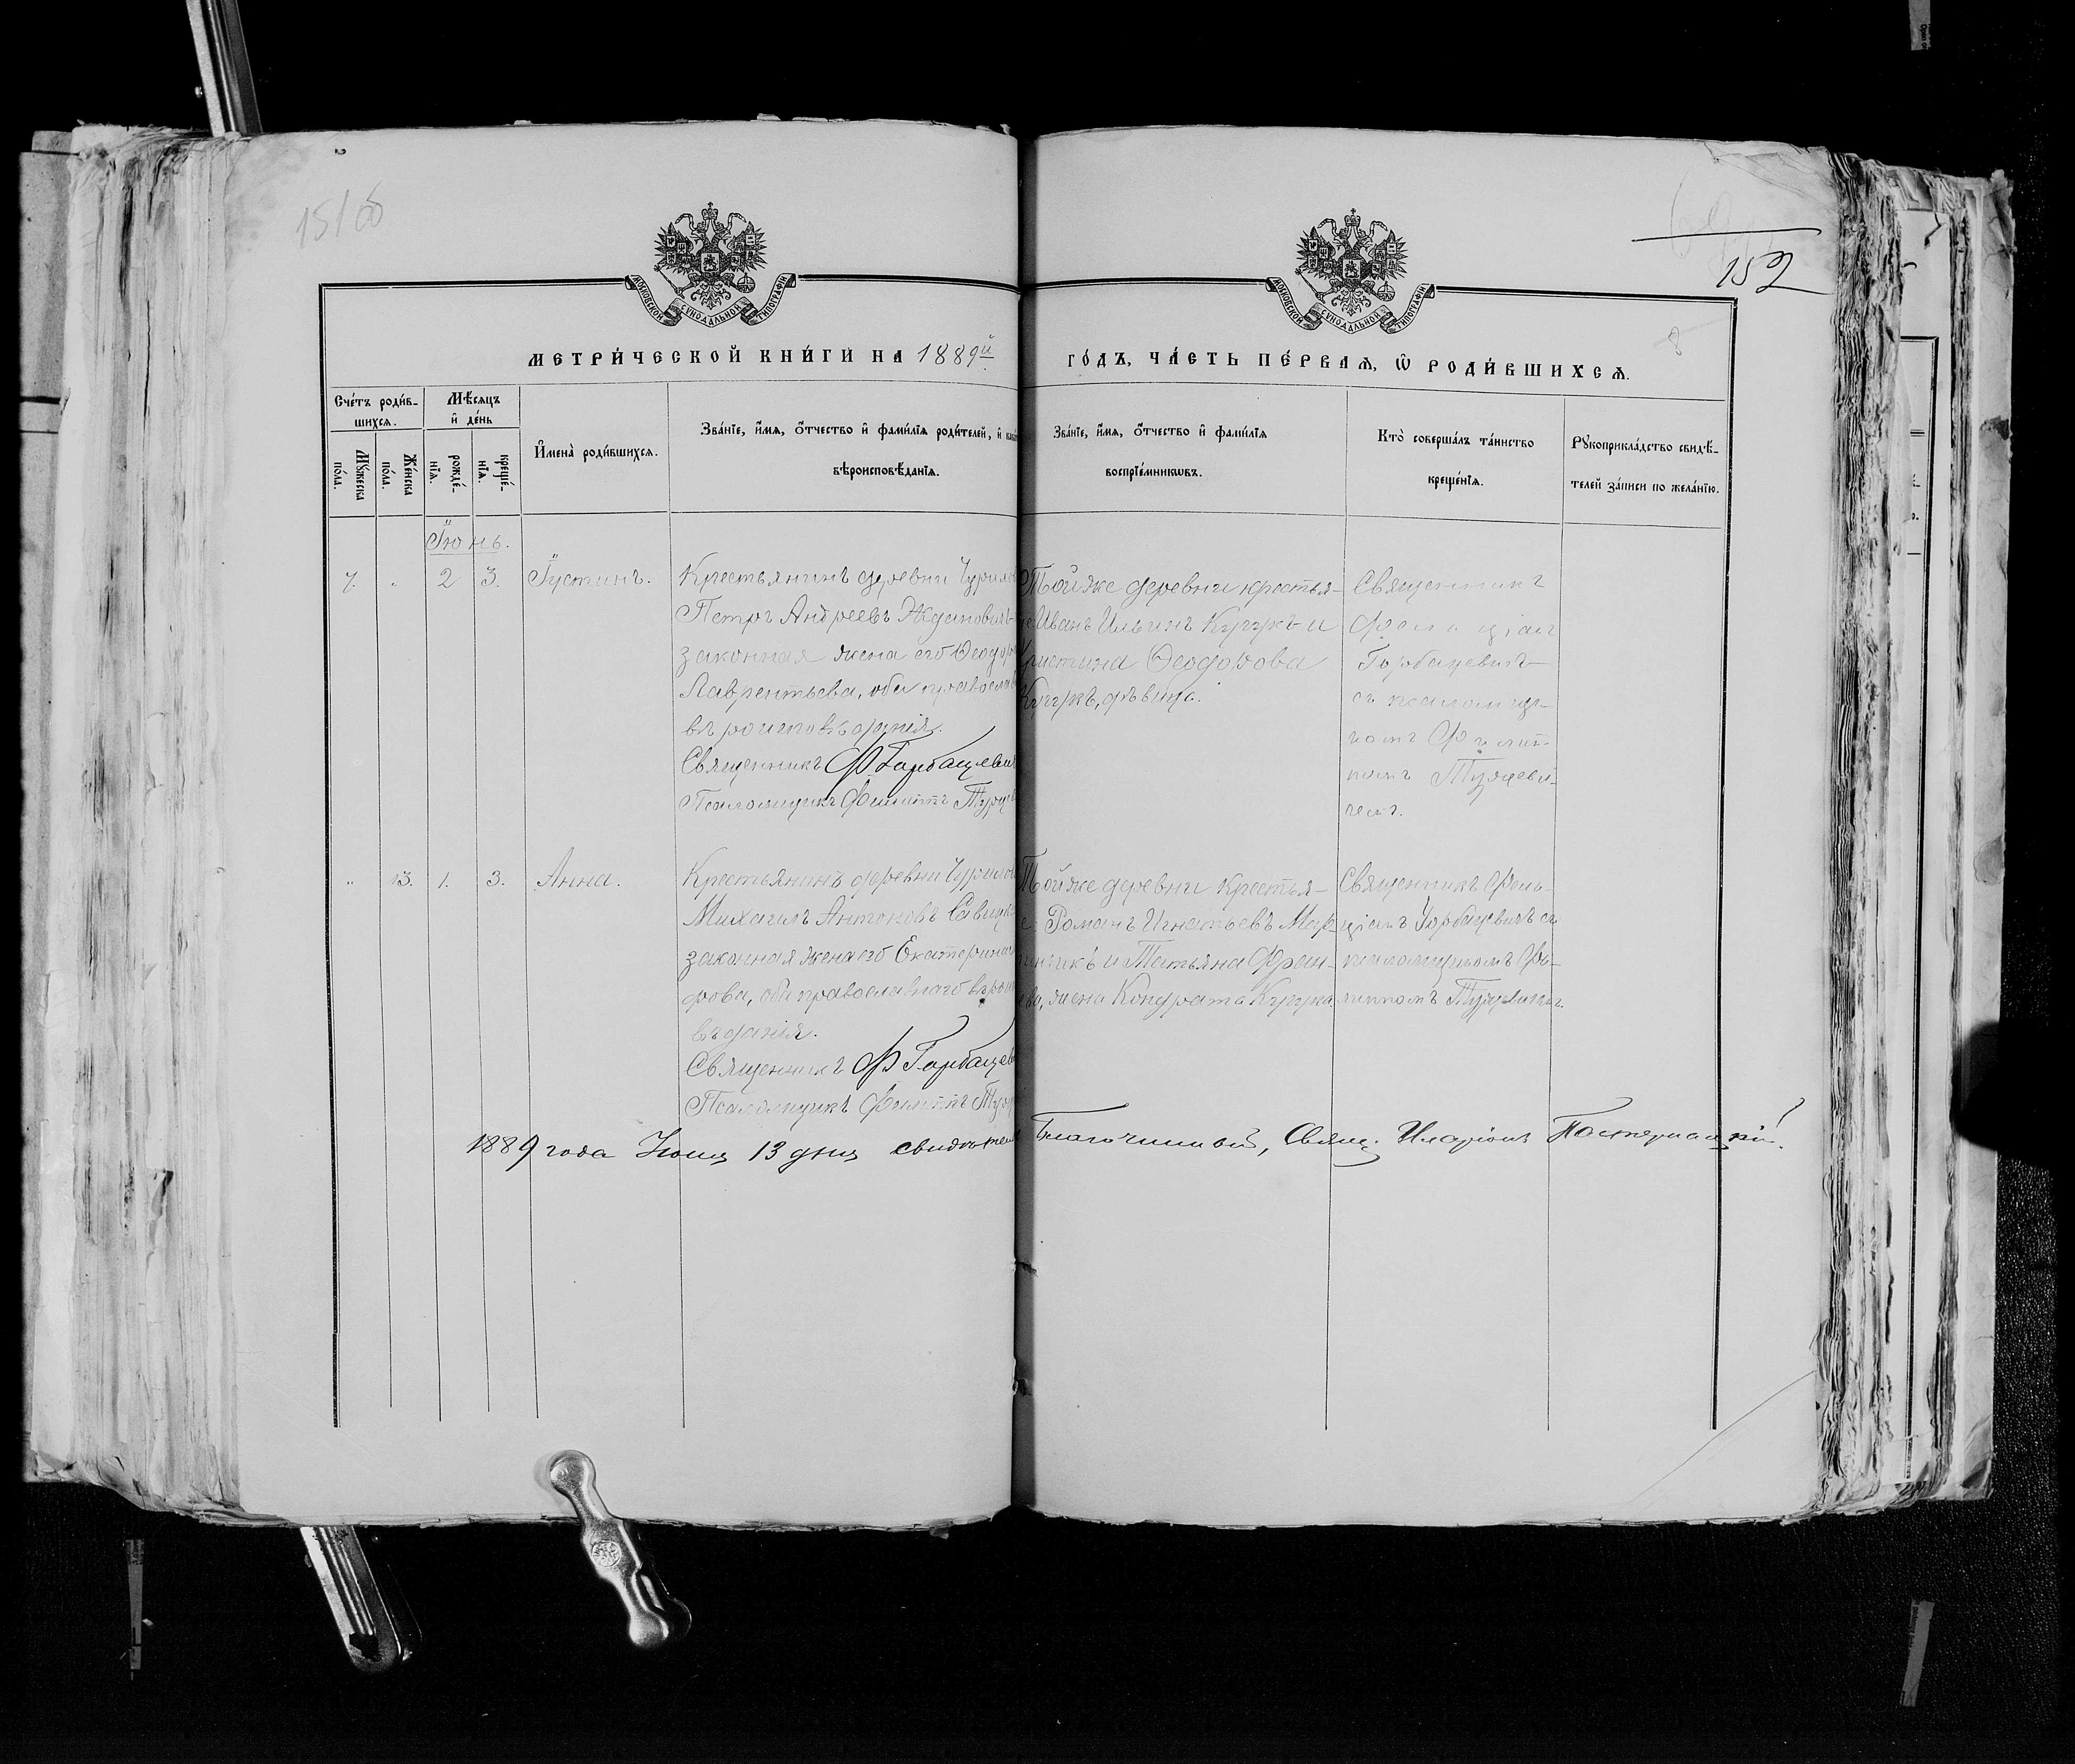 15/об
152
МОСКОВСКОЙ СѴНОДАЛЬНОЙ ТИПОГРАФІИ
МОСКОВСКОЙ СѴНОДАЛЬНОЙ ТИПОГРАФІИ
МЕТРИ́ЧЕСКОЙ КНИ́ГИ НА 1889й
ГО́ДЪ, ЧА́СТЬ ПЕ́РВАЯ, Ѡ РОДИ́ВШИХСЯ.
Сче́тъ роди́в-
шихся.
Мѣ́сяцъ
и҆ де́нь
Мꙋ́жеска
по́ла.
Же́нска
по́ла.
рожде́-
нїѧ.
креще́-
нїѧ.
И҆мена̀ роди́вшихся.
Зва́нїе, и҆́мя, ѻ҆́тчество и҆ фами́лїя роди́телей, и҆
вѣроисповѣ́данїя.
Зва́нїе, и҆́мя, ѻ҆́тчество и҆ фами́лїя
воспрїе́мникѡвъ.
Кто̀ соверша́лъ та́инство
креще́нїя.
Рꙋкоприкла́дство свидѣ́-
телей за́писи по жела́нїю.
Іюнь.
7. " 2 3. Іустинъ.
Крестьянинъ деревни
Петръ Андреевъ Жданович
законная жена его Ѳеодор
Лаврентьева, оба православ
вѣроисповѣданія.
Священникъ Ф Горбацевич
Псаломщикъ Филиппъ Турце
Той же деревни крестья-
не Иванъ Ильинъ Кучукъ и
Христина Ѳеодорова
Кучукъ, дѣвица.
Священникъ
Фелиціанъ
Горбацевичъ
съ псаломщи-
комъ Филип-
помъ Турцеви-
чемъ.
" 13. 1. 3. Анна.
Крестьянинъ деревни
Михаилъ Антоновъ Савицк
законная жена его Екатерина
рова, оба православнаго вѣроис
вѣданія.
Священникъ Ф Горбацев
Псаломщикъ Филиппъ Тур
Той же деревни крестья-
е Романъ Игнатьевъ Мар-
и Татьяна Фран-
ва, жена Кондрата Кучука
Священникъ Фели-
ціанъ Горбацевичъ съ
псаломщикомъ Фи-
липпомъ Турцевичемъ.
1889 года Іюня 13 дня свидѣтел Благочинный, Свящ. Иларіонъ Пастернацкій.